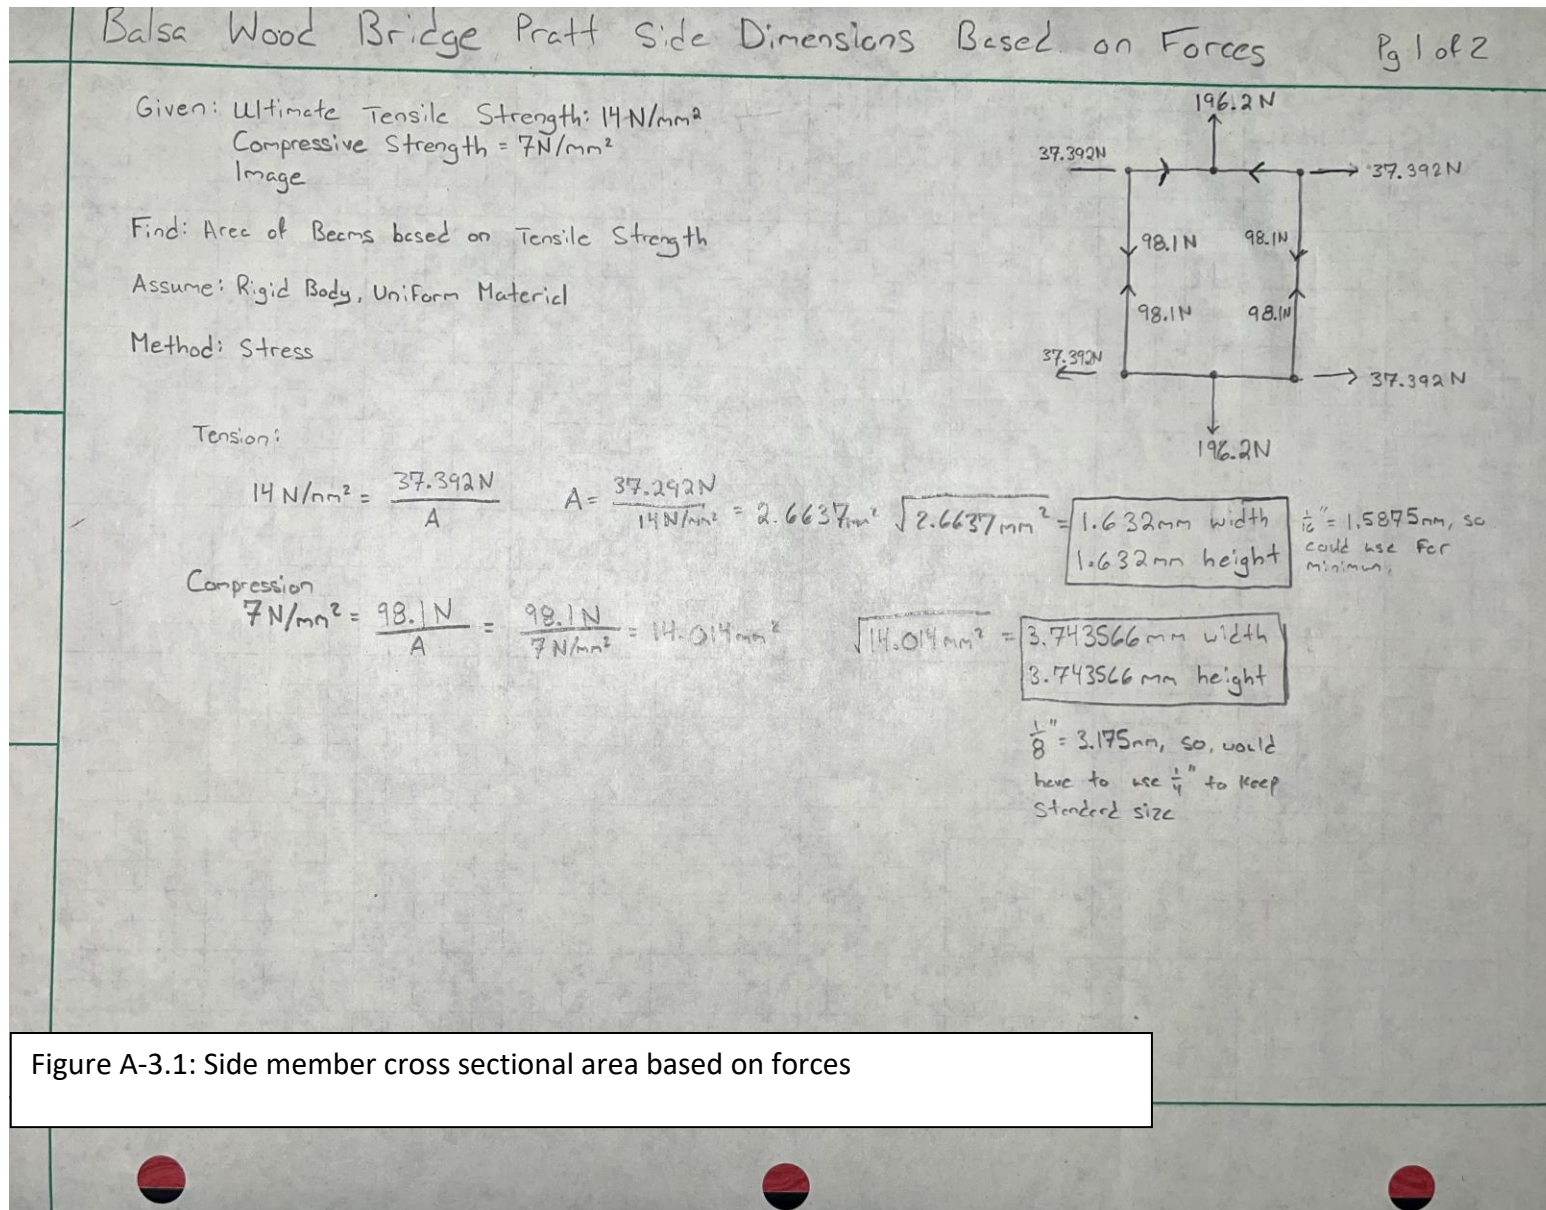 Balsa Wood Bridge Pratt Side Dimensions Based on Forces Pg 1 of 2
Given: Ultimate Tensile Strength: 14 N/mm²
Compressive Strength = 7N/mm²
Image
Find: Area of Beams based on Tensile Strength
Assume: Rigid Body, Uniform Material
Method: Stress
196.2N
37.392N
37.392N
98.1N 98.1N
98.1N 98.1N
37.392N
37.392N
196.2N
Tension:
14 N/mm² = 37.392N / A A = 37.292N / 14N/mm² = 2.6637mm² √2.6637mm² = 1.632mm width
1.632mm height
1/16" = 1.5875mm, so
could use for
minimum,
Compression
7N/mm² = 98.1N / A = 98.1N / 7N/mm² = 14.014mm² √14.014mm² = 3.743566mm width
3.743566mm height
1/8" = 3.175mm, so, would
have to use 1/4" to keep
Standard size
Figure A-3.1: Side member cross sectional area based on forces